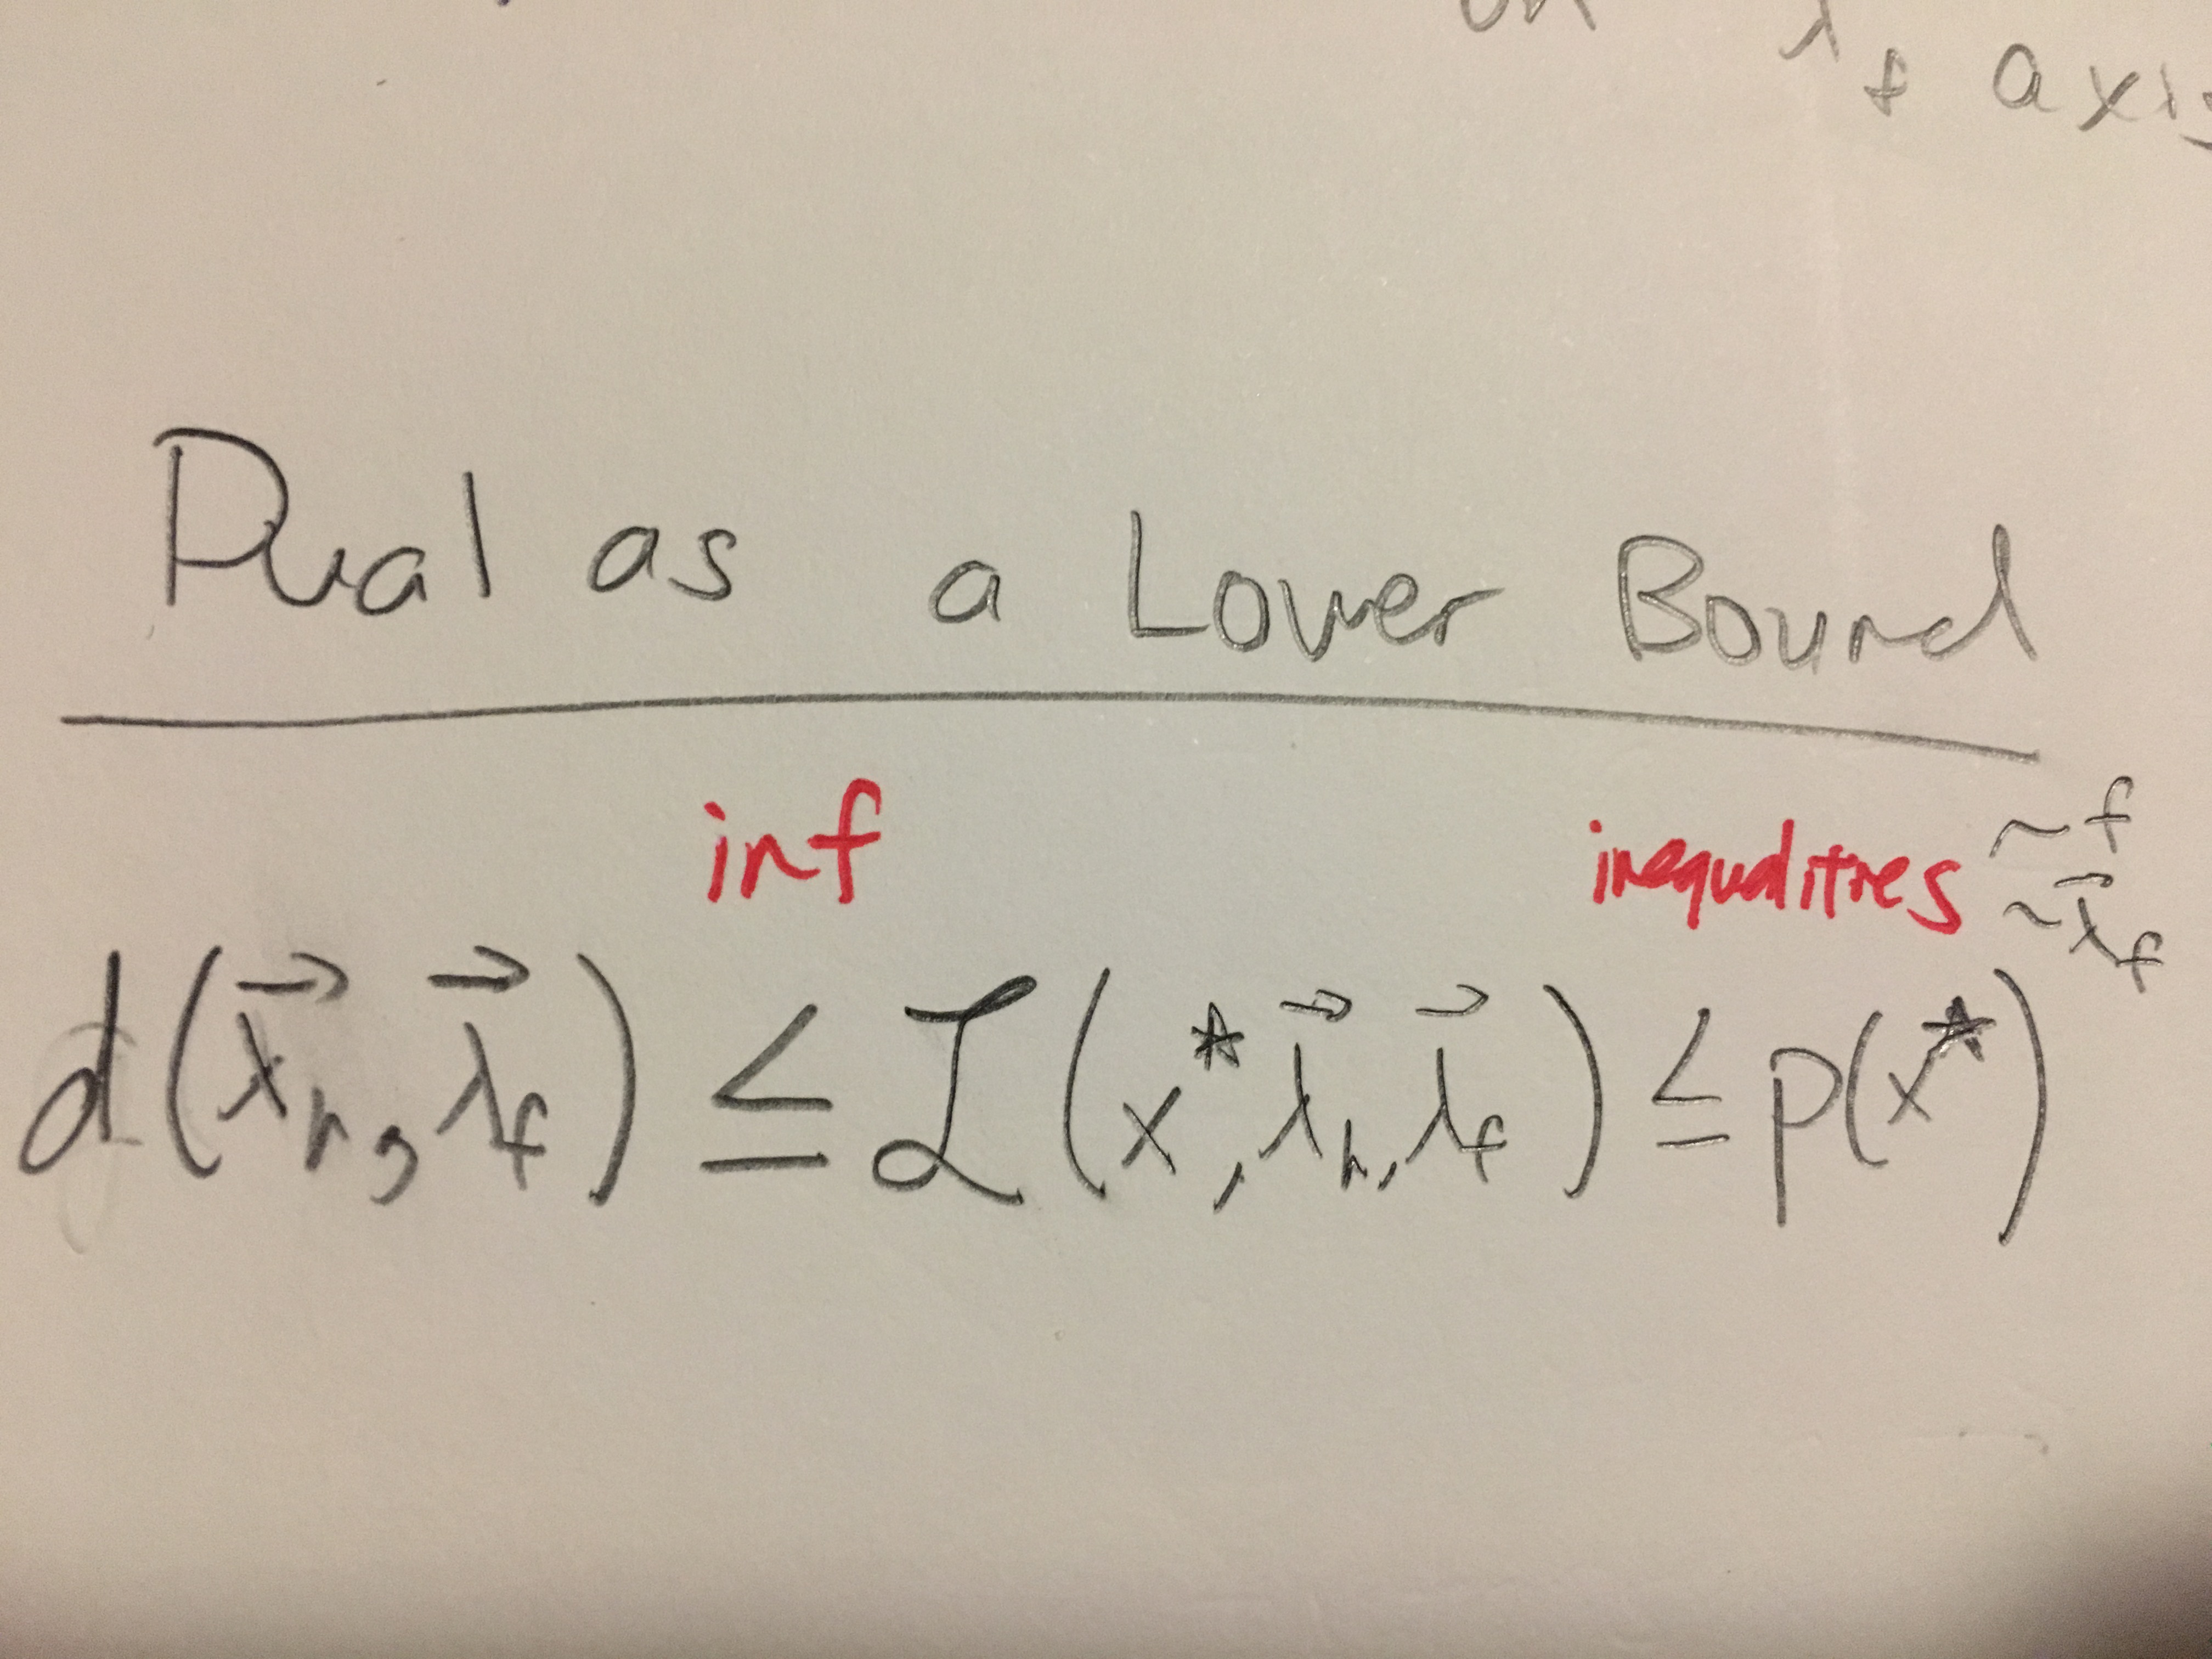 λ_f axis
Dual as a Lower Bound
inf inequalities ~f
~λ⃗_f
d(λ⃗_h, λ⃗_f) ≤ ℒ(x*, λ⃗_h, λ⃗_f) ≤ p(x*)